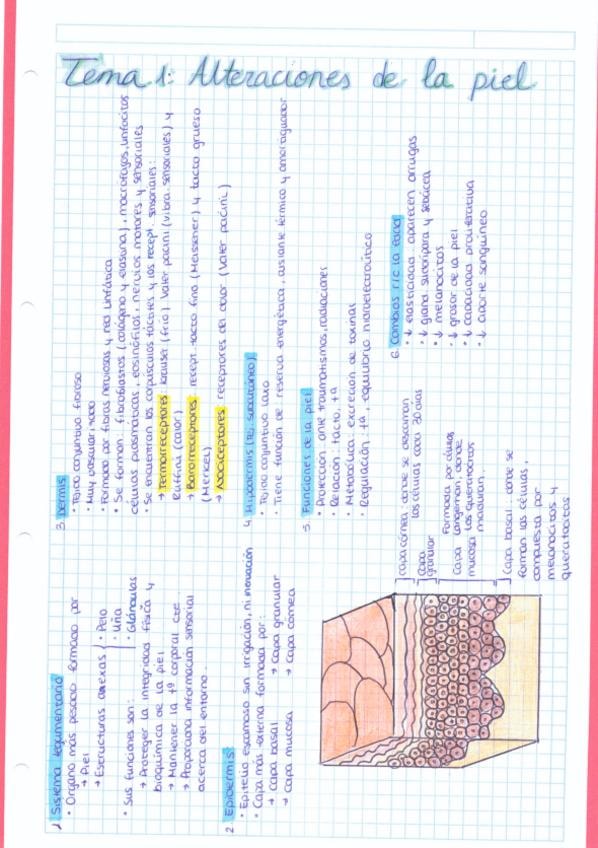 Tema 1: Alteraciones de la piel
1. Sistema tegumentario
· Órgano más pesado formado por
→ Piel
→ Estructuras anexas
· Pelo
· Uña
· Glándulas
· Sus funciones son:
→ Proteger la integridad física y
bioquímica de la piel
→ Mantener la tª corporal cte.
→ Proporciona información sensorial
acerca del entorno.
2. Epidermis:
· Epitelio escamoso sin irrigación, ni inervación
· Capa más externa formada por:
→ Capa basal
→ Capa granular
→ Capa mucosa
→ Capa córnea
3. Dermis:
· Tejido conjuntivo fibroso
· Muy vascularizado
· Formado por fibras nerviosas y red linfática
· Se forman: fibroblastos (colágeno y elastina), macrófagos, linfocitos
células plasmáticas, eosinófilos, nervios motores y sensoriales
· Se encuentran los corpúsculos táctiles y los recept. sensoriales:
→ Termorreceptores: Krausse (frío), Vater pacini (vibra. sensoriales) y
Ruffini (calor)
→ Barorreceptores: recept. tacto fino (Meissener) y tacto grueso
(Merkel)
→ Nociceptores: receptores del dolor (Vater pacini)
4. Hipodermis (tej. subcutáneo):
· Tejido conjuntivo laxo
· Tiene función de reserva energética, aislante térmico y amortiguador
5. Funciones de la piel
· Protección: ante traumatismos, radiaciones
· Relación: tacto, tª
· Metabólica: excreción de toxinas
· Regulación: tª, equilibrio hidroelectrolítico
6. Cambios r/c la edad
· ↓ elasticidad: aparecen arrugas
· ↓ gland. sudorípara y sebácea
· ↓ melanocitos
· ↓ grosor de la piel
· ↓ capacidad proliferativa
· ↓ aporte sanguíneo
capa córnea: donde se descaman
las células cada 30 días
Capa
granular
Capa
mucosa
Formada por células
langerhan, donde
los queratinocitos
maduran.
capa basal: donde se
forman las células,
compuesta por
melanocitos y
queratocitos